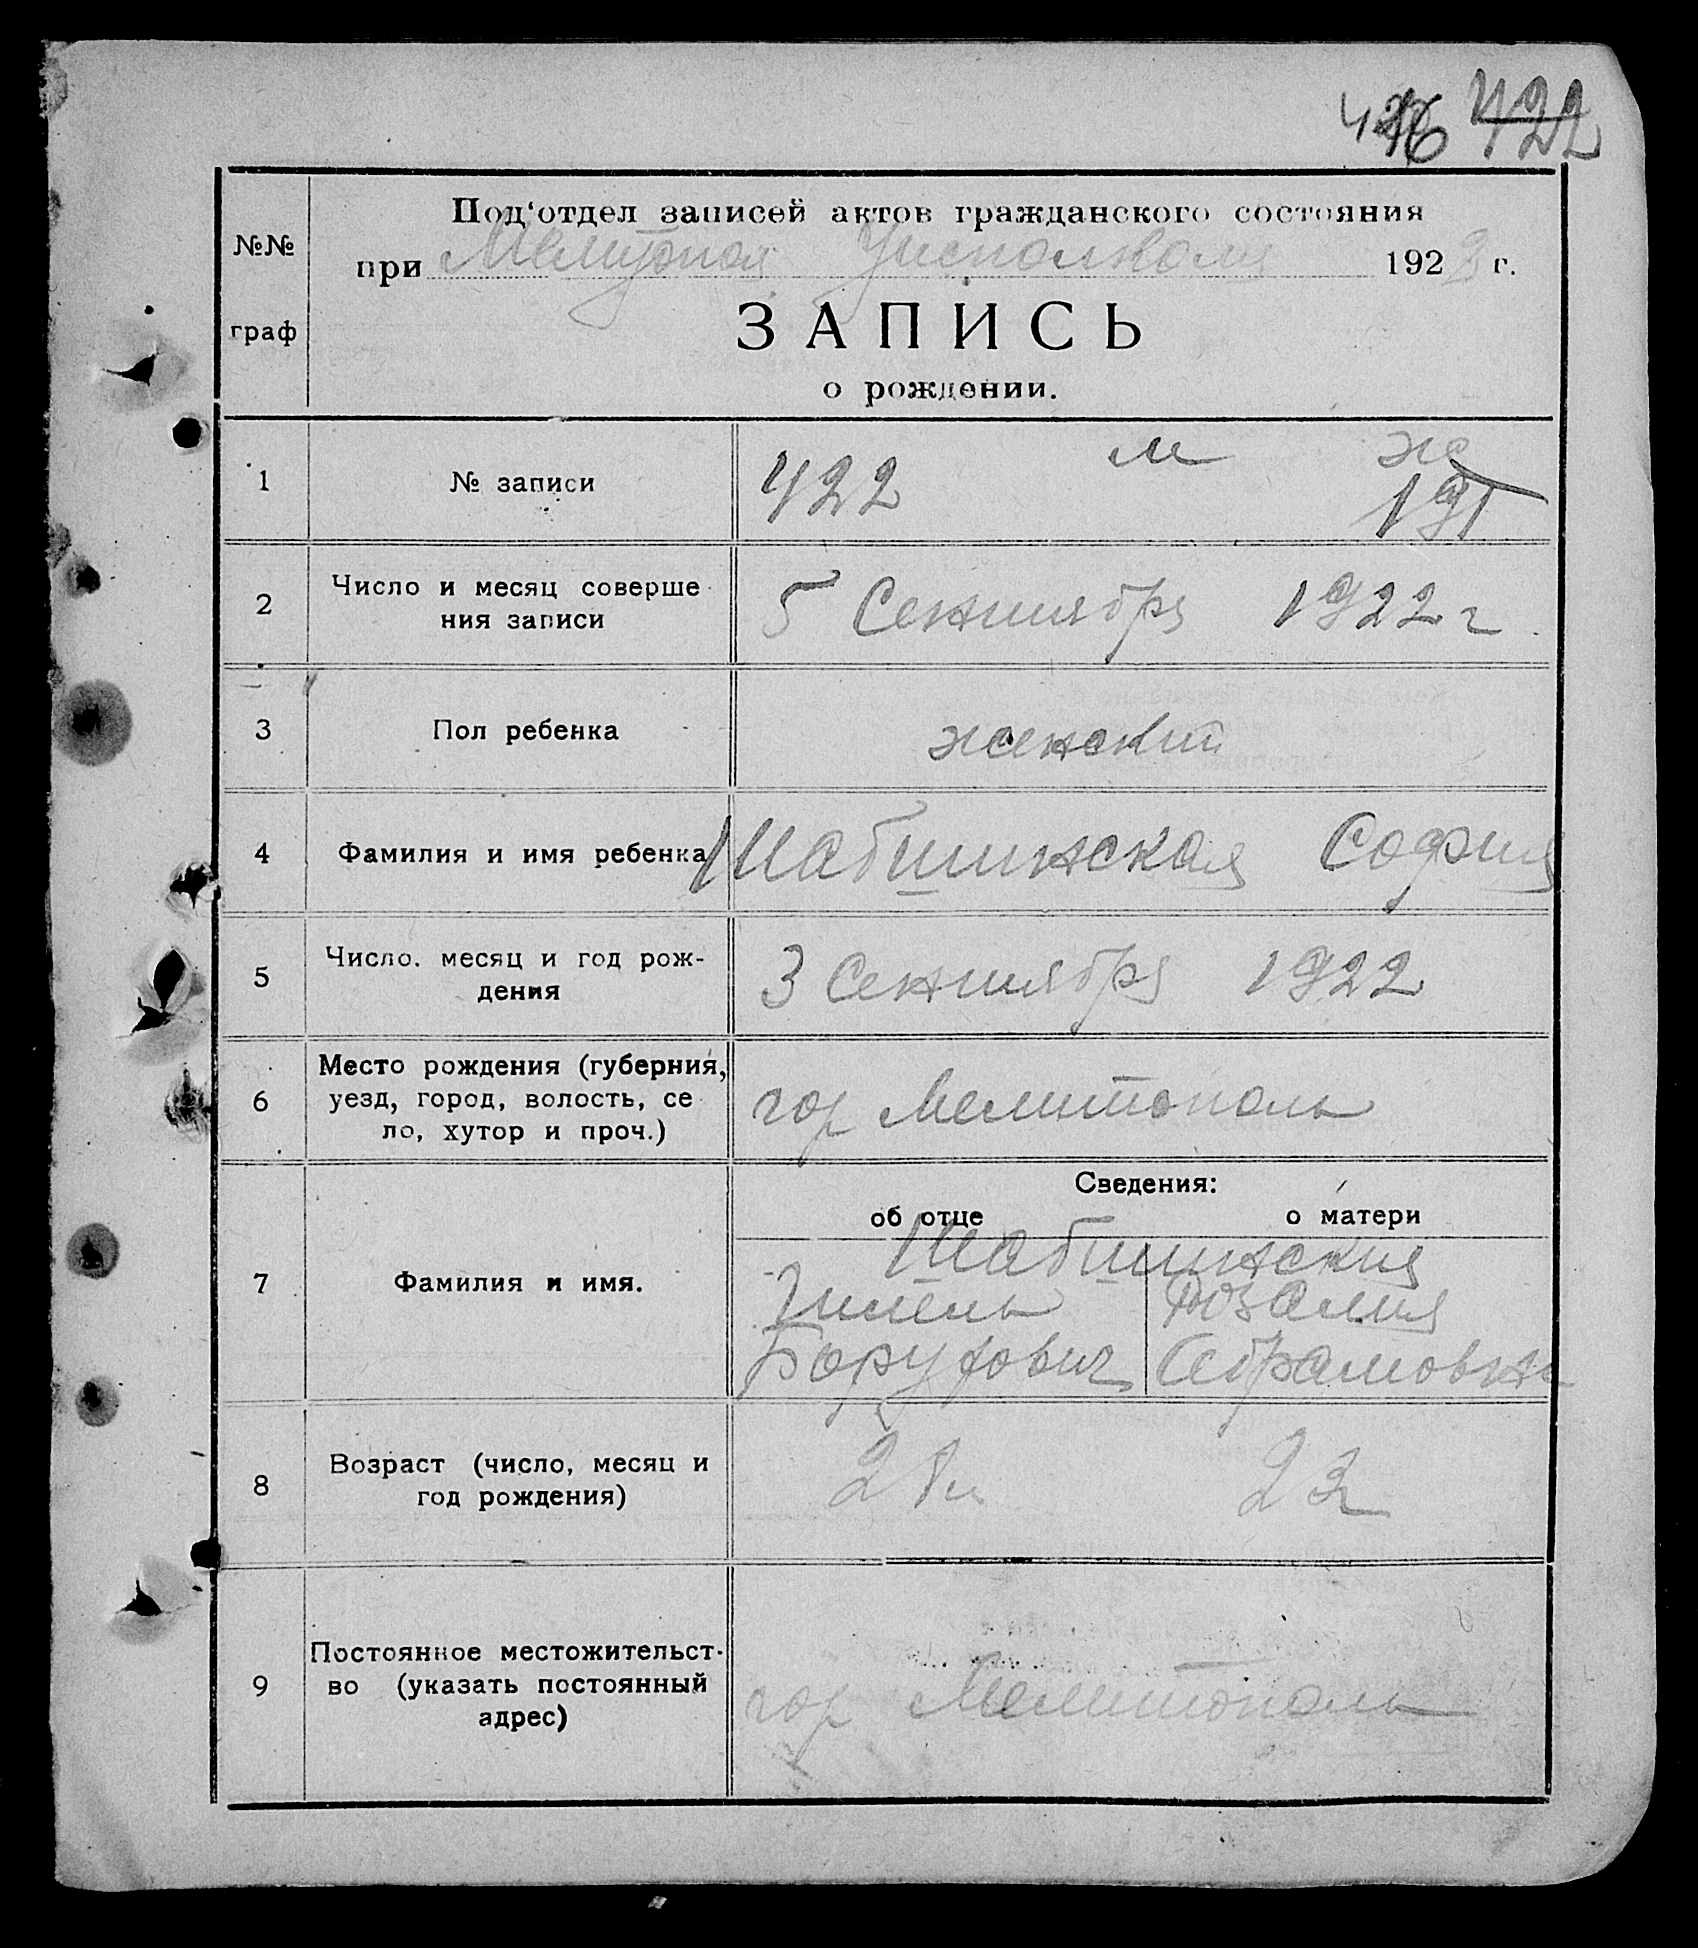 422
Под'отдел записей актов гражданского состояния
№№
граф
при Уисполкоме 192 г.
ЗАПИСЬ
о рождении.
1 № записи 422 м ж
191
2 Число и месяц соверше
ния записи 5 Сентября 1922 г
3 Пол ребенка женский
4 Фамилия и имя ребенка Шабшинская София
5 Число, месяц и год рож-
дения 3 Сентября 1922
6 Место рождения (губерния,
уезд, город, волость, се
ло, хутор и проч.) гор Мелитополь
Сведения:
об отце о матери
7 Фамилия и имя. Шабшинския
Гилель Розалия
Борухович Абрамовна
8 Возраст (число, месяц и
год рождения) 28 л 23
9 Постоянное местожительст-
во (указать постоянный
адрес) гор Мелитополь